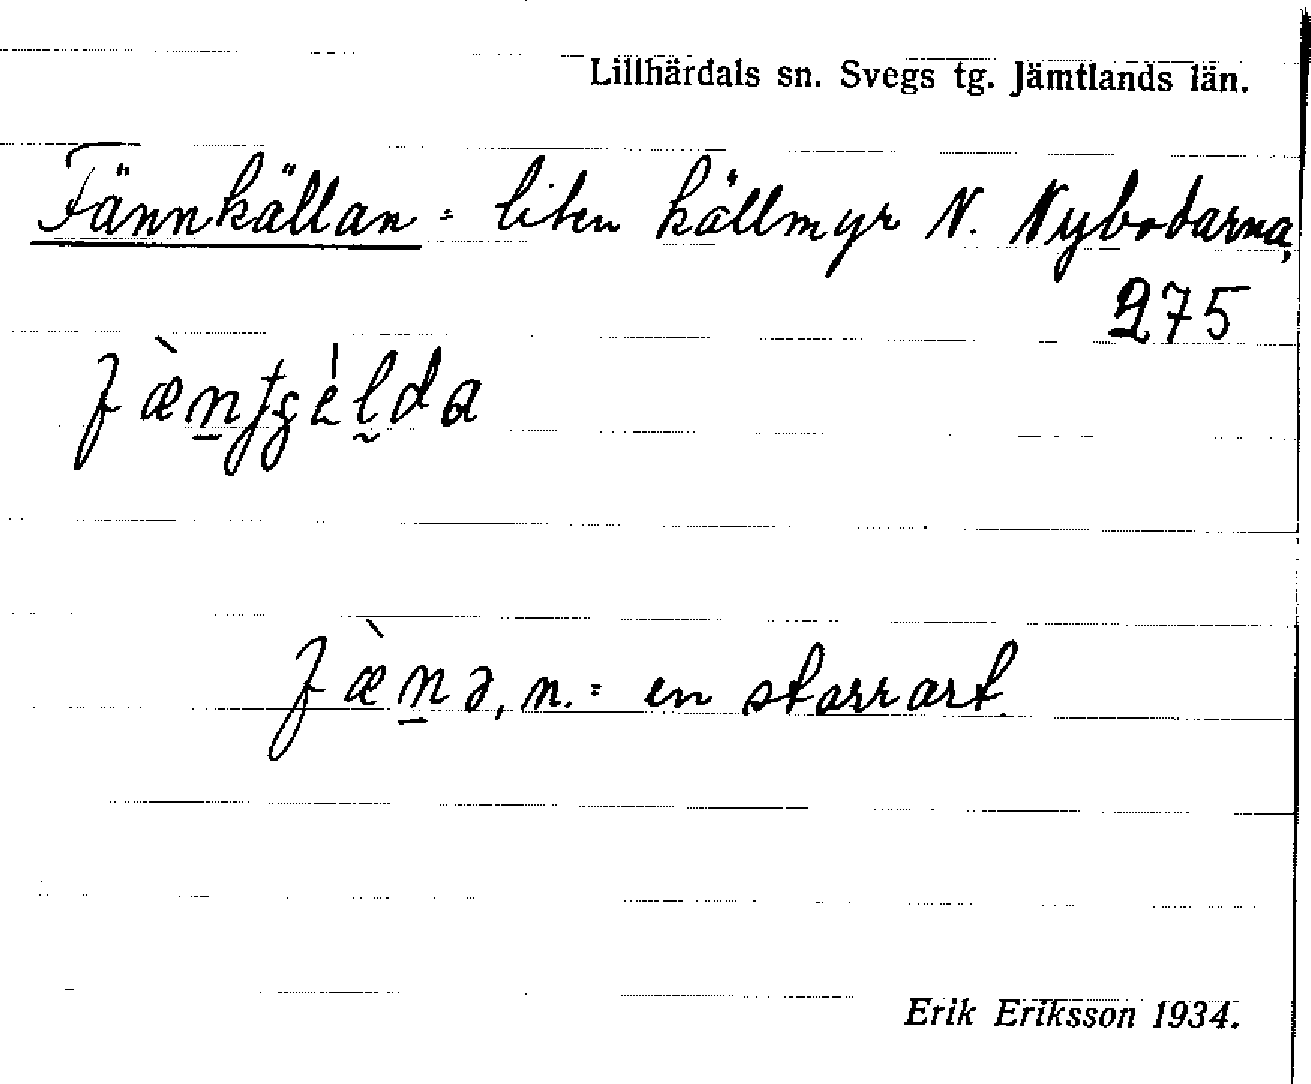 Lillhärdals sn. Svegs tg. Jämtlands län.
Fännkällan = liten källmyr N. Nybodarna,
275
fæ̀n̠ʃgèl̰da
fæ̀n̠ə, n. = en starrart.
Erik Eriksson 1934.